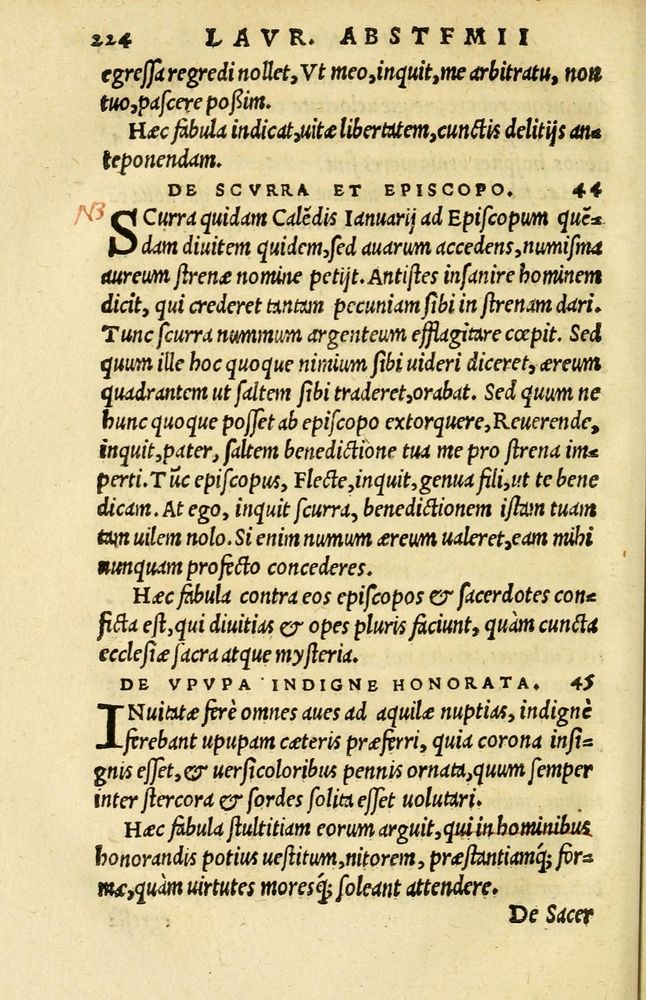 224 LAVR. ABSTFMII
egressa regredi nollet, Vt meo, inquit, me arbitratu, non
tuo, pascere poßim.
Hæc fabula indicat, uitæ libertatem, cunctis delitijs an-
teponendam.
DE SCVRRA ET EPISCOPO. 44
NB
SCurra quidam Calẽdis Ianuarij ad Episcopum quẽ-
dam diuitem quidem, sed auarum accedens, numisma
aureum strenæ nomine petijt. Antistes insanire hominem
dicit, qui crederet tantam pecuniam sibi in strenam dari.
Tunc scurra nummum argenteum efflagitare cœpit. Sed
quum ille hoc quoque nimium sibi uideri diceret, æreum
quadrantem ut saltem sibi traderet, orabat. Sed quum ne
hunc quoque posset ab episcopo extorquere, Reuerende,
inquit, pater, saltem benedictione tua me pro strena im-
perti. Tũc episcopus, Flecte, inquit, genua fili, ut te bene
dicam. At ego, inquit scurra, benedictionem istam tuam
tam uilem nolo. Si enim numum æreum ualeret, eam mihi
nunquam profecto concederes.
Hæc fabula contra eos episcopos & sacerdotes con-
ficta est, qui diuitias & opes pluris faciunt, quàm cuncta
ecclesiæ sacra atque mysteria.
DE VPVPA INDIGNE HONORATA. 45
INuitatæ ferè omnes aues ad aquilæ nuptias, indignè
ferebant upupam cæteris præferri, quia corona insi-
gnis esset, & uersicoloribus pennis ornata, quum semper
inter stercora & sordes solita esset uolutari.
Hæc fabula stultitiam eorum arguit, qui in hominibus
honorandis potius uestitum, nitorem, præstantiamq; for-
mæ, quàm uirtutes moresq; soleant attendere.
De Sacer